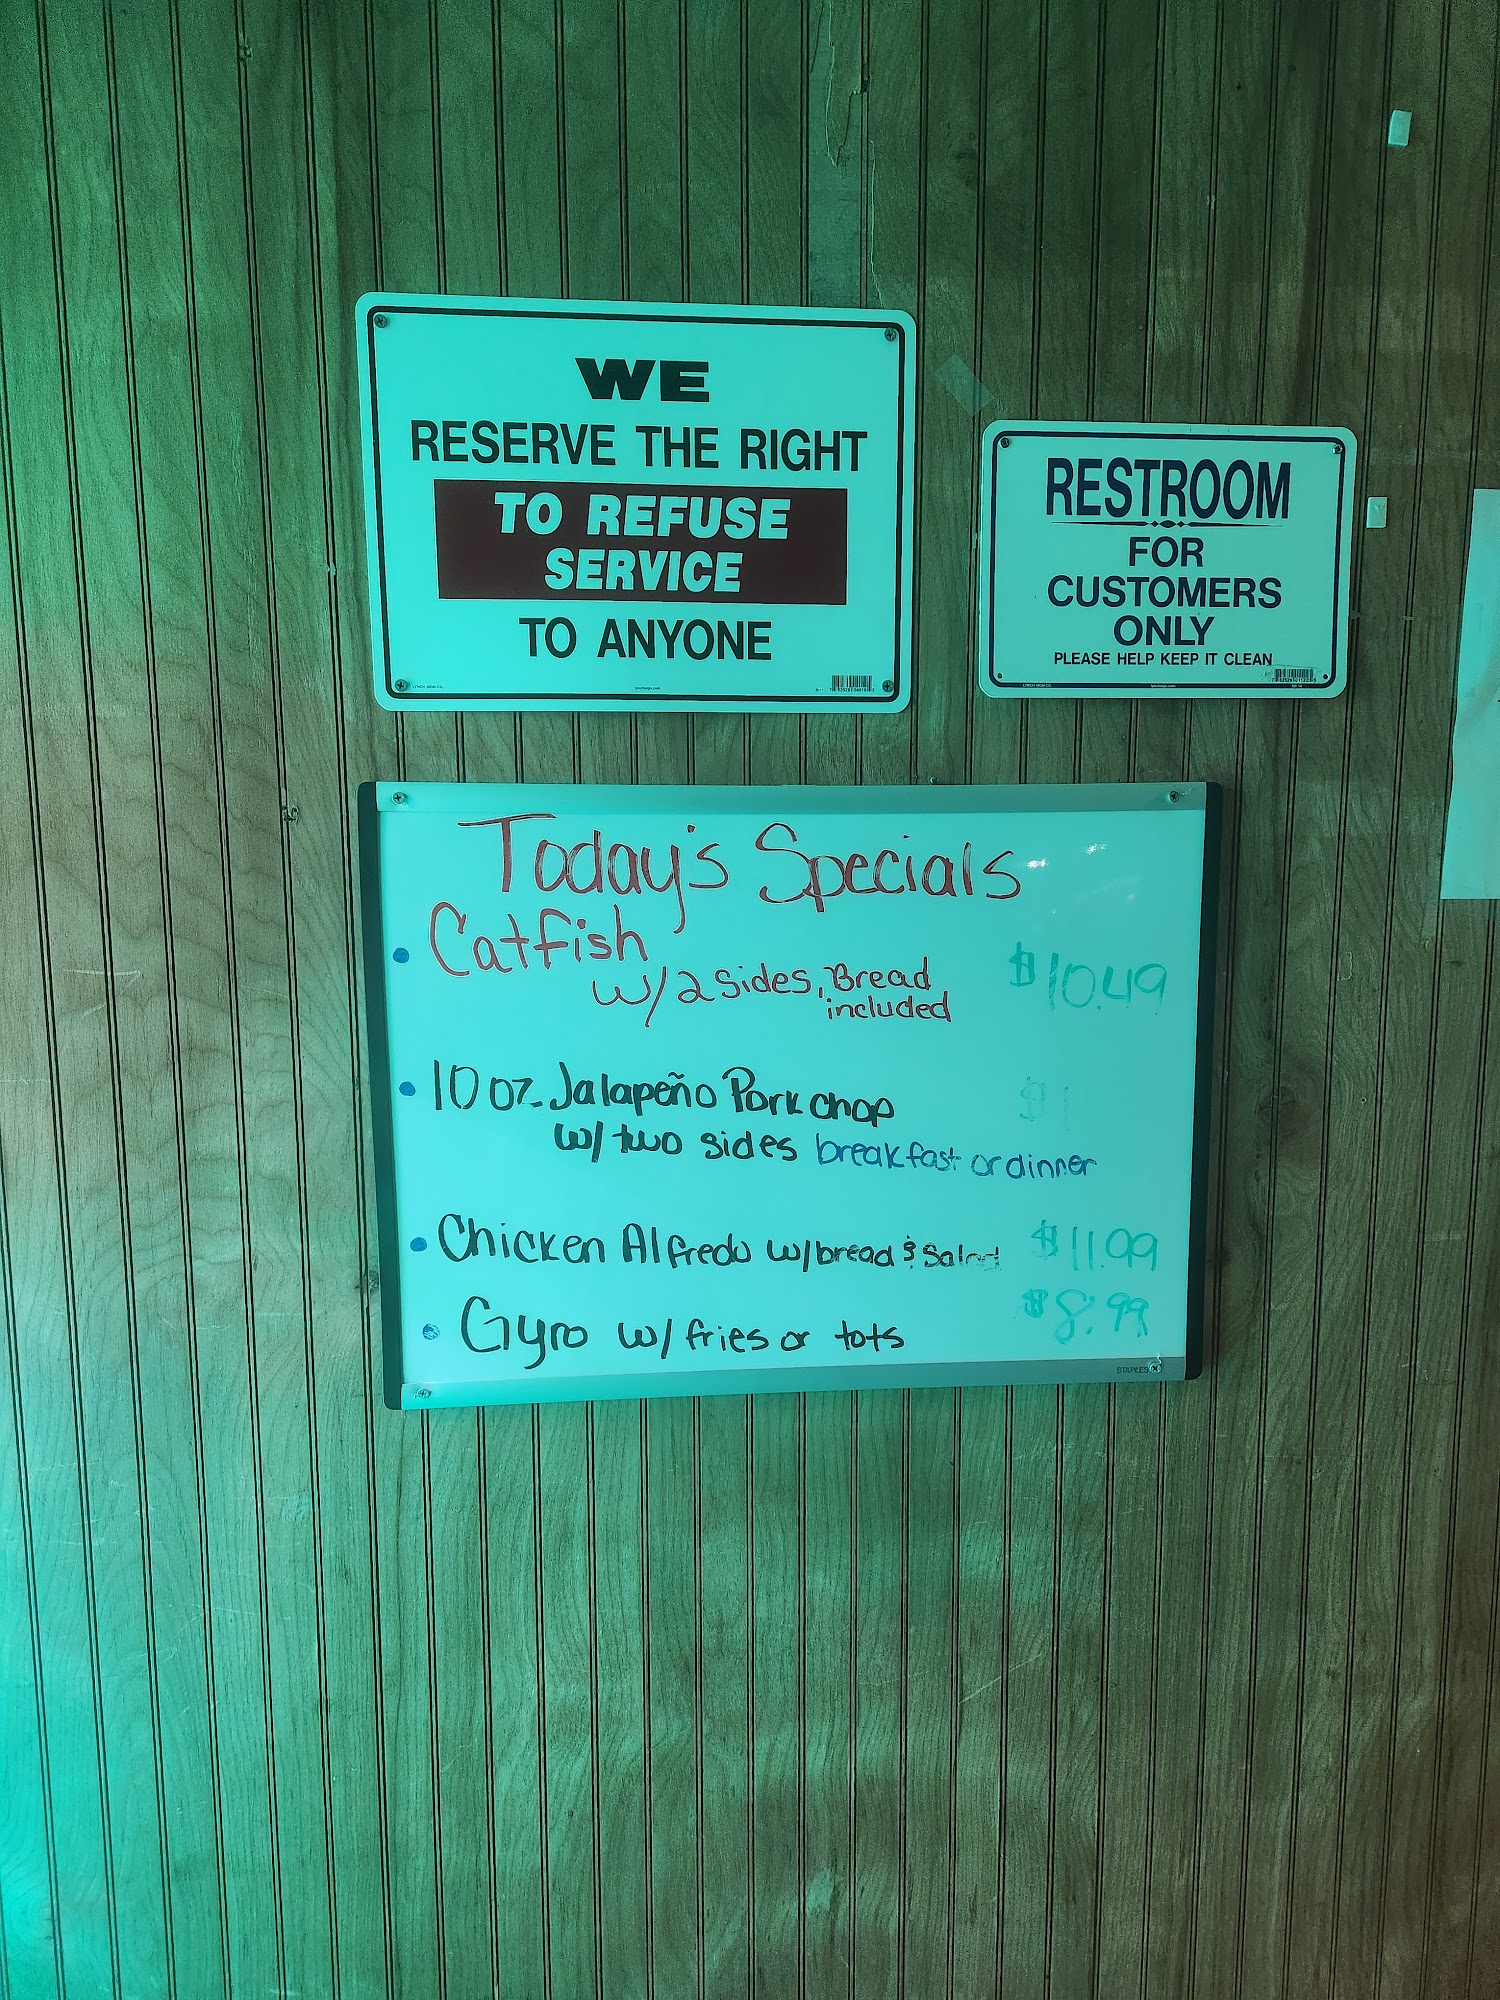 WE
RESERVE THE RIGHT
TO REFUSE
SERVICE
TO ANYONE
RESTROOM
FOR
CUSTOMERS
ONLY
PLEASE HELP KEEP IT CLEAN
Today's Specials
• Catfish
w/ 2 sides, Bread $10.49
included
• 10 oz. Jalapeño Pork chop $1
w/ two sides breakfast or dinner
• Chicken Alfredo w/ bread & Salad $11.99
• Gyro w/ fries or tots $8.99
STAPLES